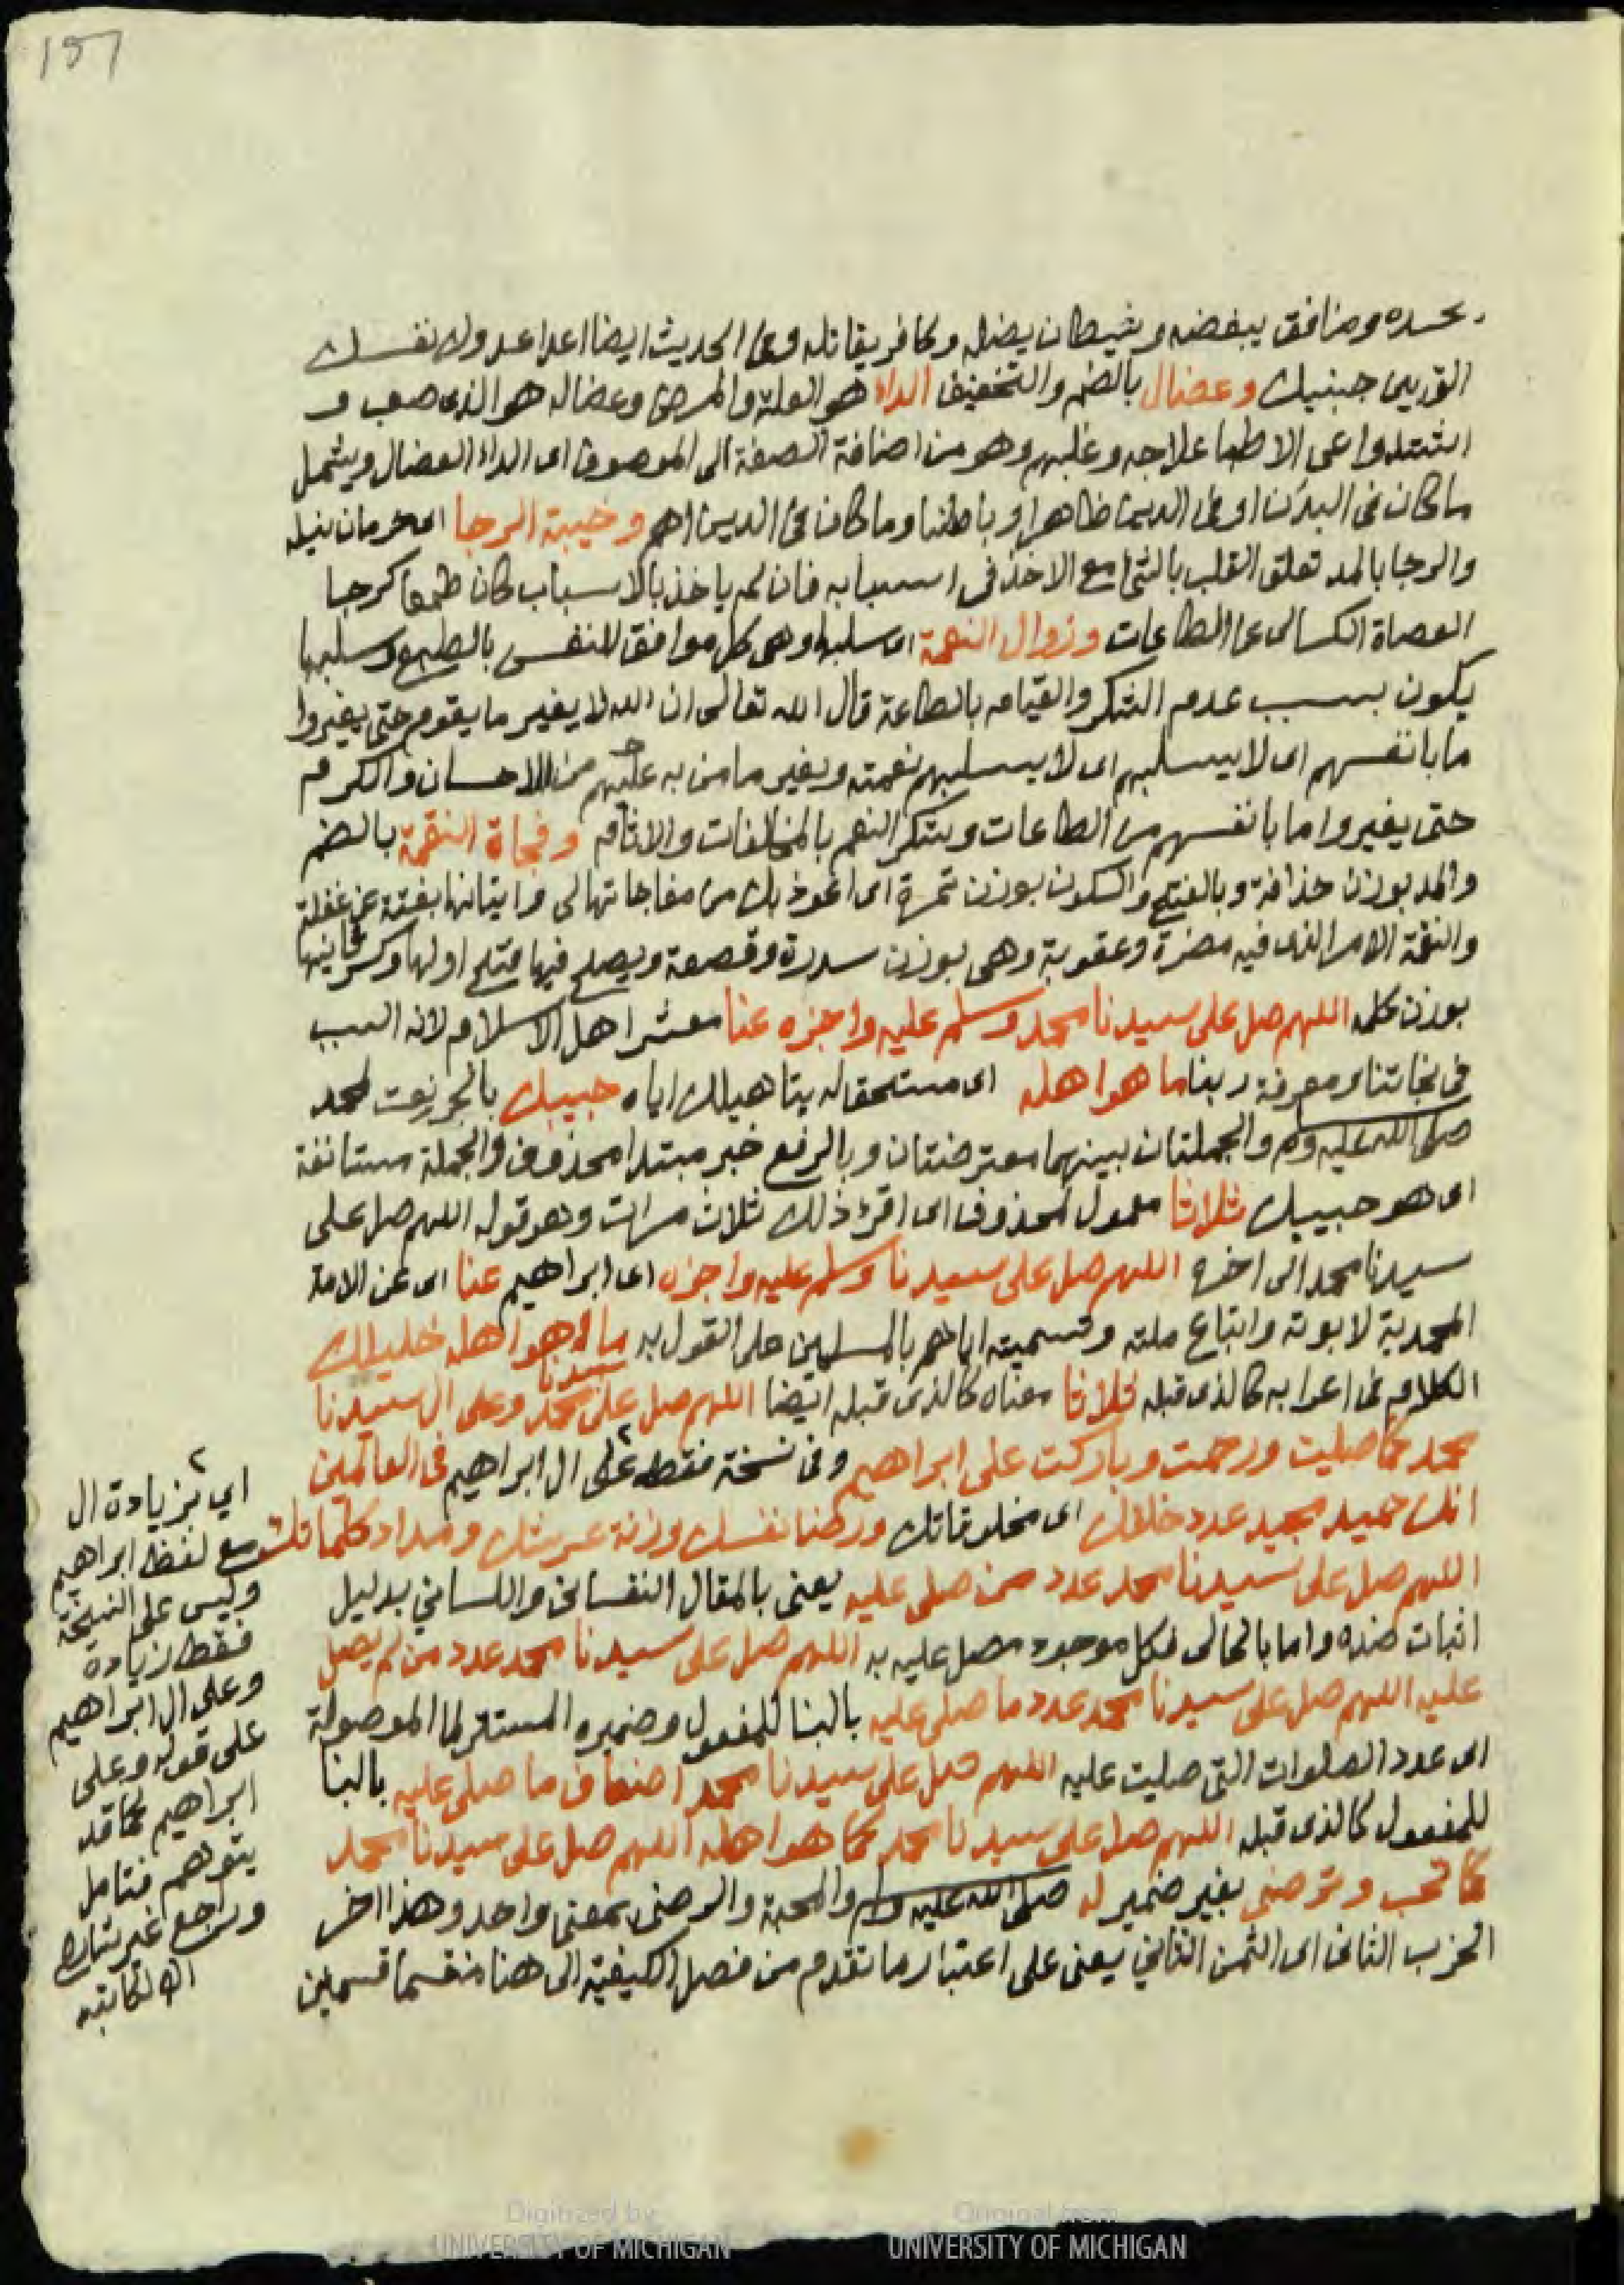 157
يحسده ومنافق يبغضه وشيطان يضله وكافر يقاتله وفى الحديث ايضا اعدا عدوك نفسك
التى بين جنبيك وعضال بالضم والتخفيف الداء هو العلة والمرض وعضاله هو الذى صعب و
اشتد واعى الاطبا علاجه وغلبهم وهو من اضافة الصفة الى الموصوف اى الداء العضال ويشمل
ما كان فى البدن او فى الدين ظاهرا وباطنا وما كان فى الدين اهم وخيبة الرجا اى حرمان نيله
والرجا بالمد تعلق القلب بالشئ مع الاخذ فى اسبابه فان لم ياخذ بالاسباب كان طمعا كرجا
العصاة الكسالى عن الطاعات وزوال النعمة اى سلبها وهى كل موافق للنفس بالطبع وسلبها
يكون بسبب عدم الشكر والقيام بالطاعة قال الله تعالى ان الله لا يغير ما بقوم حتى يغيروا
ما بانفسهم اى لا يسلبهم اى لا يسلبهم نعمته ويغير ما من به عليهم من الاحسان والكرم
حتى يغيروا ما بانفسهم من الطاعات وبشكر النعم بالمخالفات والاثام وفجاة النقمة بالضم
والمد بوزن حذافة وبالفتح والسكون بوزن تمرة اى اعوذ بك من مفاجاتها لى واتيانها بغتة عن غفلة
والنقمة الامر الذى فيه مضرة وعقوبة وهى بوزن سدرة وقصعة ويصلح فيها فتح اولها وكسر ثانيها
بوزن كلمه اللهم صل على سيدنا محمد وسلم عليه واجزه عنا معشر اهل الاسلام لانه السبب
فى نجاتنا ومعرفة ربنا ما هو اهله اى مستحقا له بتاهيلك اياه حبيبك بالجر نعت لمحمد
صلى الله عليه وسلم والجملتان بينهما معترضتان وبالرفع خبر مبتدا محذوف والجملة مستانفة
اى هو حبيبك ثلاثا معمول لمحذوف اى اقرئ ذلك ثلاث مرات وهو قوله اللهم صل على
سيدنا محمد الى اخره اللهم صل على سيدنا وسلم عليه واجزه اى ابراهيم عنا اى عن الامة
المحمدية لابوته واتباع ملته وتسميته اياهم بالمسلمين على القول به ما هو اهله خليلك
الكلام فى اعرابه كالذى قبله ثلاثا معناه كالذى قبله ايضا اللهم صل على سيدنا محمد وعلى ال سيدنا
محمد كما صليت ورحمت وباركت على ابراهيم وفى نسخة فقط على ال ابراهيم فى العالمين
انك حميد مجيد عدد خلقك اى مخلوقاتك ورضا نفسك وزنة عرشك ومداد كلماتك
اللهم صل على سيدنا محمد عدد من صلى عليه يعنى بالمقال النفسانى واللسانى بدليل
اثبات ضده واما بالحالى فكل موجود مصل عليه به اللهم صل على سيدنا محمد عدد من لم يصل
عليه اللهم صل على سيدنا محمد عدد ما صلى عليه بالبنا للمفعول وضميره المستتر لما الموصولة
اى عدد الصلوات التى صليت عليه اللهم صل على سيدنا محمد اضعاف ما صلى عليه بالبنا
للمفعول كالذى قبله اللهم صل على سيدنا محمد كما هو اهله اللهم صل على سيدنا محمد
كما تحب وترضى بغير ضمير له صلى الله عليه وسلم والمحبة والرضى بمعنى واحد وهذا اخر
الحزب الثانى اى الثمن الثانى يعنى على اعتبار ما تقدم من فصل الكيفية الى هنا منقسما قسمين
اي بزيادة ال
مع لفظ ابراهيم
وليس على النسخة
فقط زيادة
وعلى ال ابراهيم
على قوله وعلى
ابراهيم كما قد
يتوهم فتامل
وراجع غير
اه لكاتبه
Digitized by
UNIVERSITY OF MICHIGAN
Original from
UNIVERSITY OF MICHIGAN